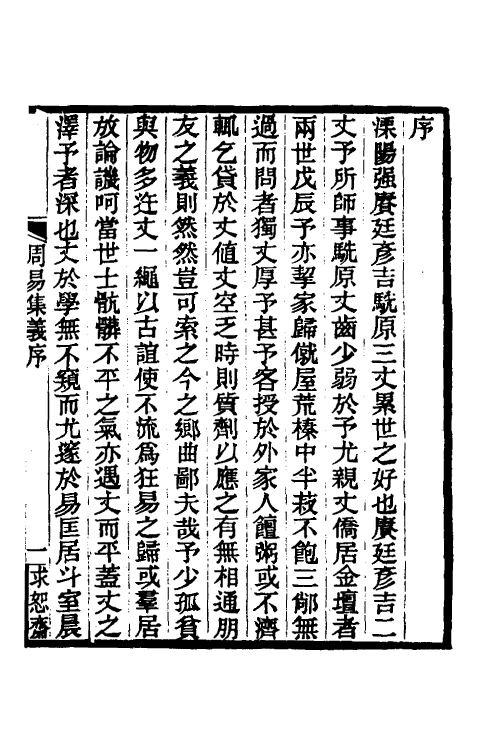 序
溧陽强賡廷彥吉駪原三丈累世之好也賡廷彥吉二
丈予所師事駪原丈齒少弱於予尤親丈僑居金壇者
兩世戊辰予亦挈家歸僦屋荒榛中半菽不飽三鄉無
過而問者獨丈厚予甚予客授於外家人饘粥或不濟
輒乞貸於丈値丈空乏時則質劑以應之有無相通朋
友之義則然然豈可索之今之鄉曲鄙夫哉予少孤貧
與物多迕丈一繩以古誼使不流爲狂易之歸或羣居
放論譏呵當世士骯髒不平之氣亦遇丈而平蓋丈之
澤予者深也丈於學無不窺而尤邃於易匡居斗室晨
周易集義序
一
求恕齋